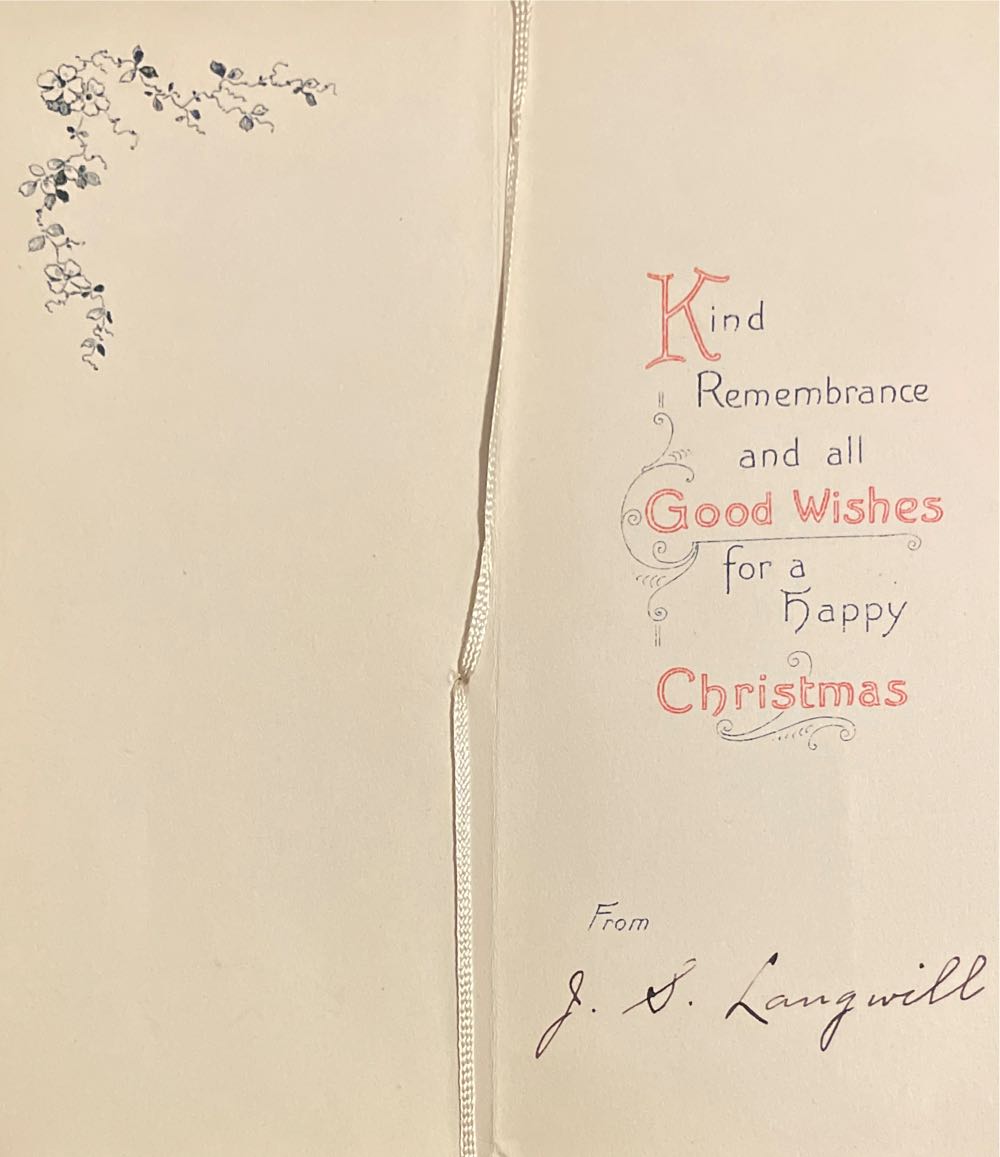 Kind
Remembrance
and all
Good Wishes
for a
Happy
Christmas
From
J. S. Langwill